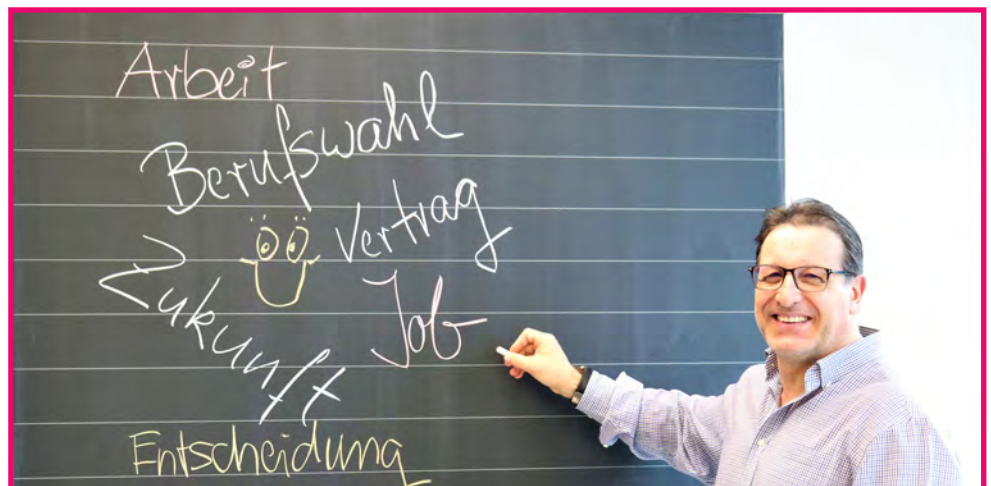 Arbeit
Berufswahl
Vertrag
Zukunft
Job
Entscheidung